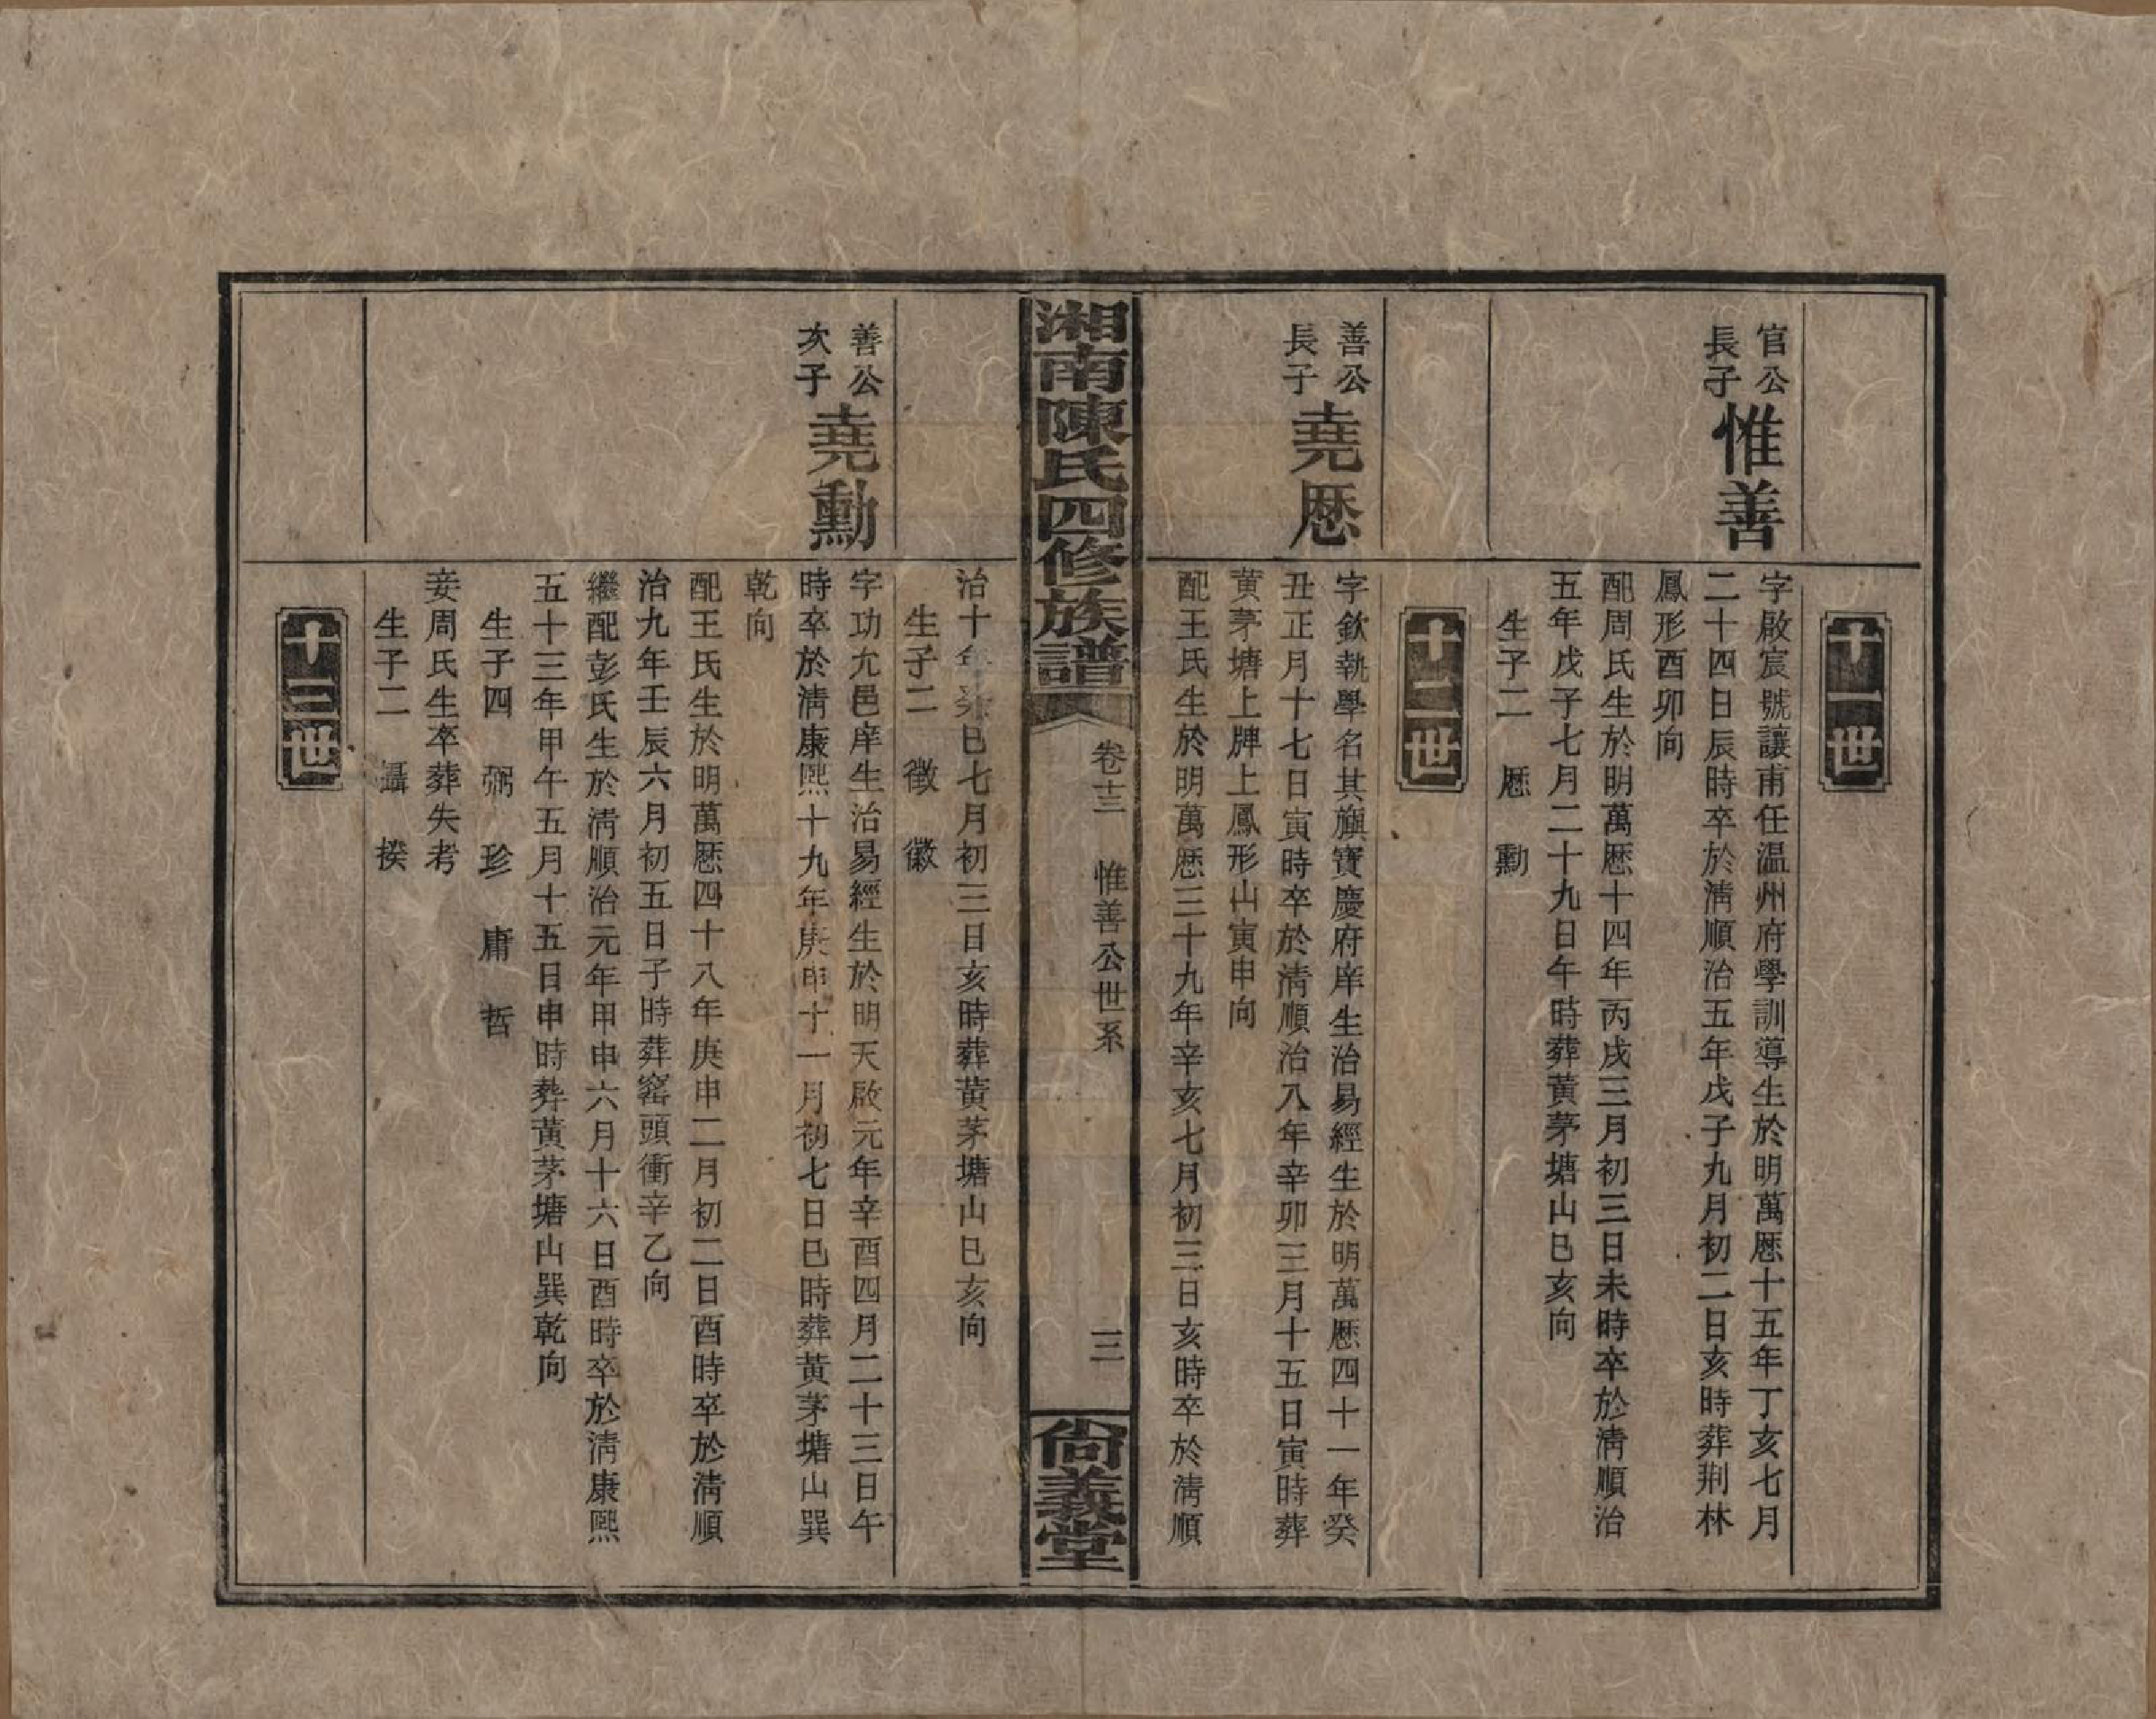 十一世
官公
長子
惟善
字啟宸號讓甫任温州府學訓導生於明萬厯十五年丁亥七月
二十四日辰時卒於淸順治五年戊子九月初二日亥時葬荆林
鳳形酉卯向
配周氏生於明萬厯十四年丙戌三月初三日未時卒於淸順治
五年戊子七月二十九日午時葬黃茅塘山巳亥向
生子二 厯 勳
十二世
善公
長子
堯厯
字欽執學名其旟寶慶府庠生治易經生於明萬厯四十一年癸
丑正月十七日寅時卒於淸順治八年辛卯三月十五日寅時葬
黃茅塘上牌上鳳形山寅申向
配王氏生於明萬厯三十九年辛亥七月初三日亥時卒於淸順
湘南陳氏四修族譜
卷十三 惟善公世系
三
尙義堂
治十年癸巳七月初三日亥時葬黃茅塘山巳亥向
生子二 徵 徽
善公
次子
堯勳
字功尢邑庠生治易經生於明天啟元年辛酉四月二十三日午
時卒於淸康熙十九年庚申十一月初七日巳時葬黃茅塘山巽
乾向
配王氏生於明萬厯四十八年庚申二月初二日酉時卒於淸順
治九年壬辰六月初五日子時葬窰頭衝辛乙向
繼配彭氏生於淸順治元年甲申六月十六日酉時卒於淸康熙
五十三年甲午五月十五日申時葬黃茅塘山巽乾向
生子四 弼 珍 庸 哲
妾周氏生卒葬失考
生子二 攝 揆
十三世